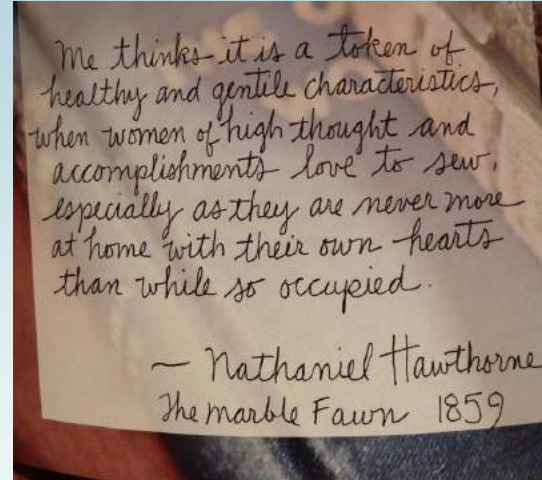 Me thinks it is a token of
healthy and gentile characteristics,
when women of high thought and
accomplishments love to sew,
especially as they are never more
at home with their own hearts
than while so occupied.
~ Nathaniel Hawthorne
The Marble Fawn 1859